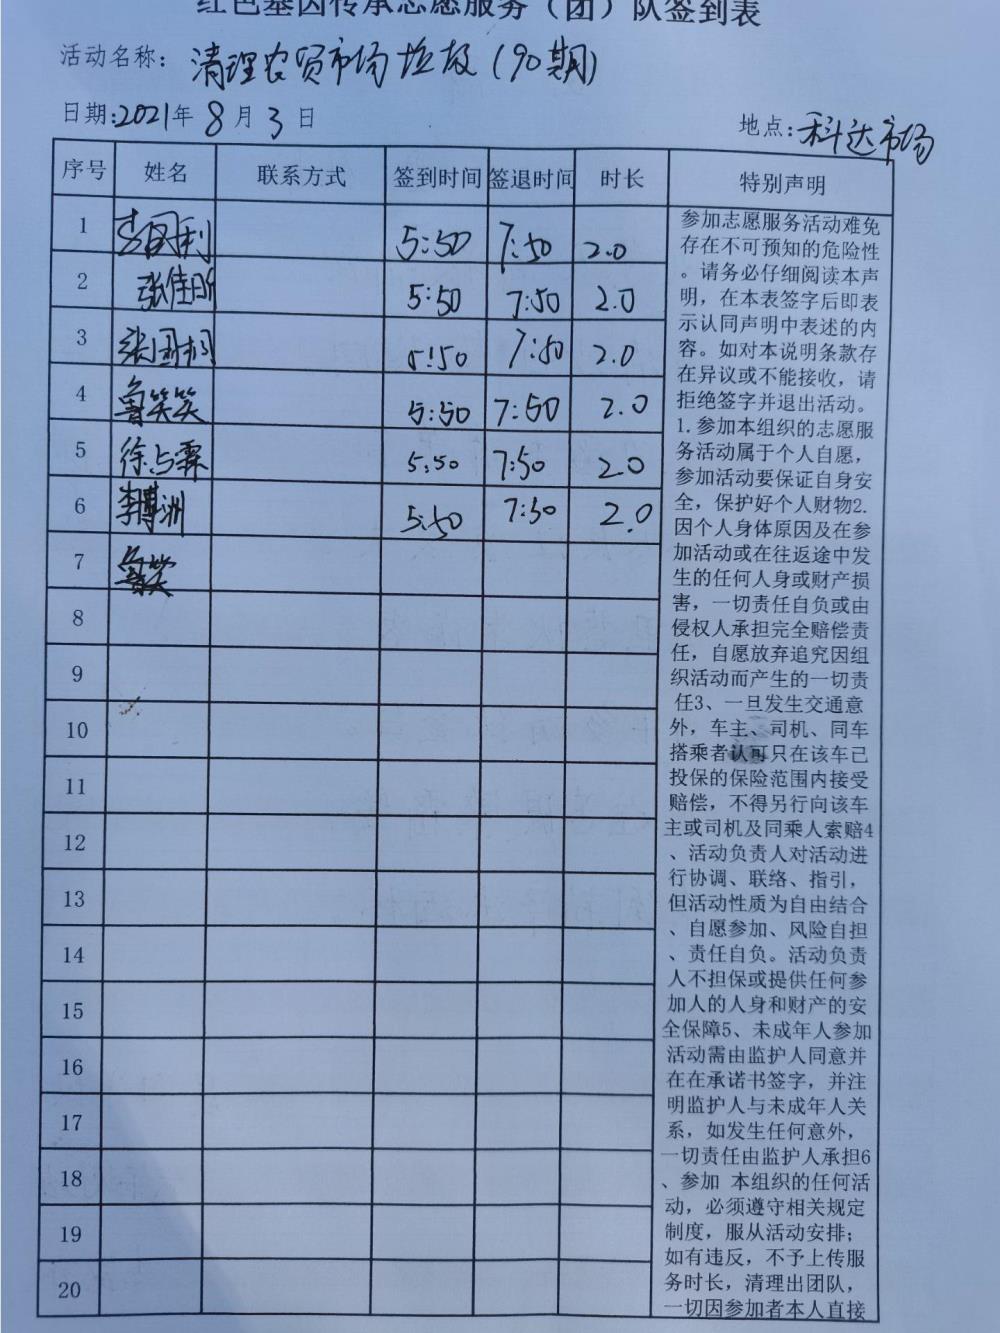 红色基因传承志愿服务（团）队签到表
活动名称：清理农贸市场垃圾(90期)
日期:2021年 8 月 3 日
地点:科达市场
序号 姓名 联系方式 签到时间 签退时间 时长 特别声明
1 5:50 7:50 2.0
2 张佳昕 5:50 7:50 2.0
3 张国栩 5:50 7:50 2.0
4 鲁笑笑 5:50 7:50 2.0
5 徐占霖 5:50 7:50 2.0
6 李博洲 5:50 7:50 2.0
7
8
9
10
11
12
13
14
15
16
17
18
19
20
参加志愿服务活动难免
存在不可预知的危险性
。请务必仔细阅读本声
明，在本表签字后即表
示认同声明中表述的内
容。如对本说明条款存
在异议或不能接收，请
拒绝签字并退出活动。
1.参加本组织的志愿服
务活动属于个人自愿，
参加活动要保证自身安
全，保护好个人财物2.
因个人身体原因及在参
加活动或在往返途中发
生的任何人身或财产损
害，一切责任自负或由
侵权人承担完全赔偿责
任，自愿放弃追究因组
织活动而产生的一切责
任3、一旦发生交通意
外，车主、司机、同车
搭乘者认可只在该车已
投保的保险范围内接受
赔偿，不得另行向该车
主或司机及同乘人索赔4
、活动负责人对活动进
行协调、联络、指引，
但活动性质为自由结合
、自愿参加、风险自担
、责任自负。活动负责
人不担保或提供任何参
加人的人身和财产的安
全保障5、未成年人参加
活动需由监护人同意并
在在承诺书签字，并注
明监护人与未成年人关
系，如发生任何意外，
一切责任由监护人承担6
、参加 本组织的任何活
动，必须遵守相关规定
制度，服从活动安排；
如有违反，不予上传服
务时长，清理出团队，
一切因参加者本人直接